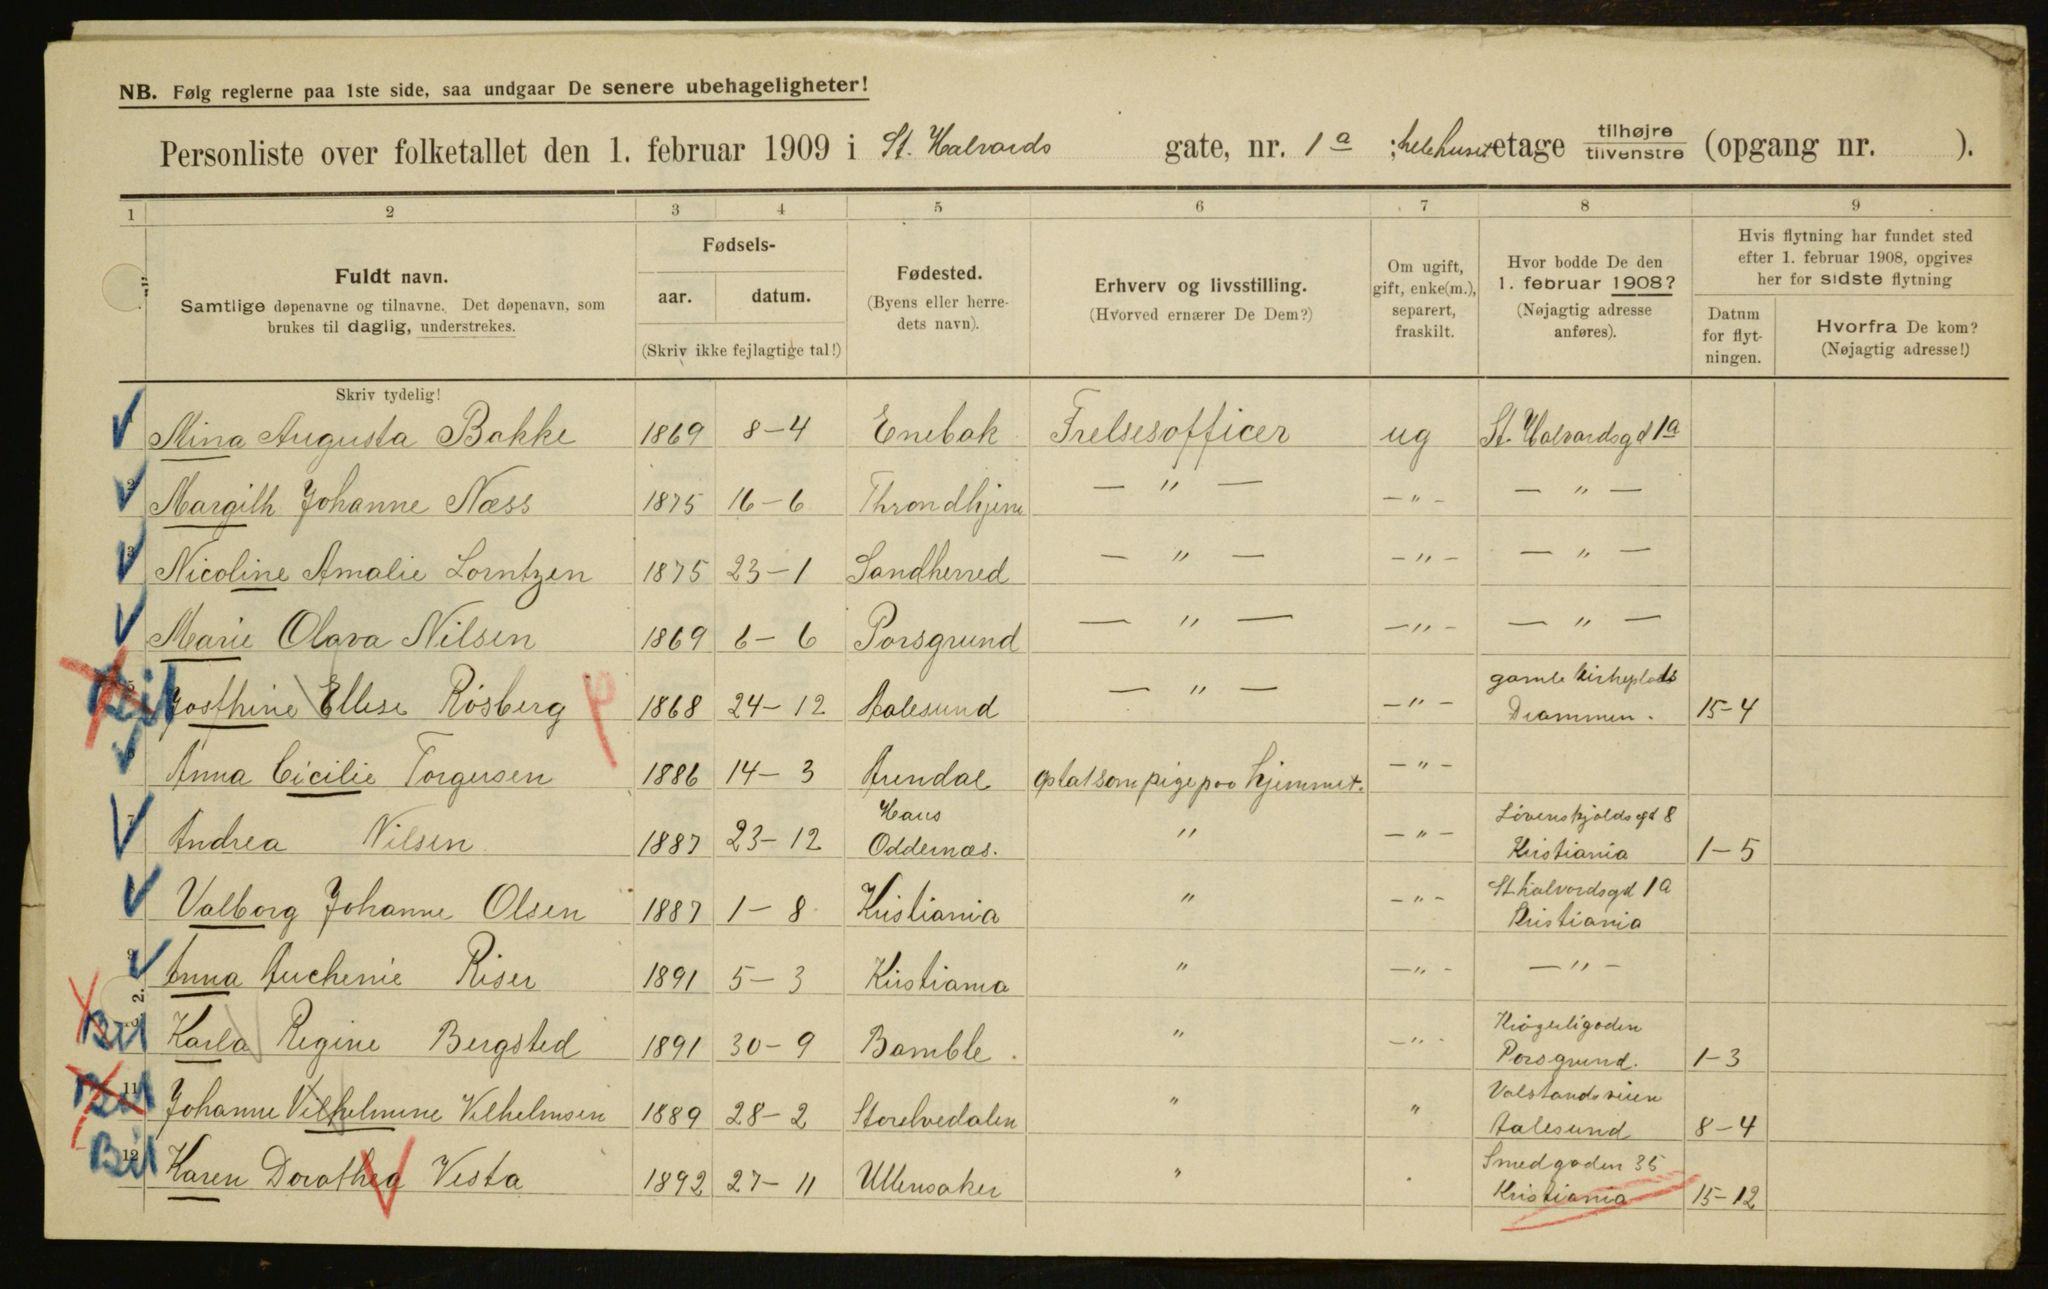 NB. Følg reglerne paa 1ste side, saa undgaar De senere ubehageligheter!
Personliste over folketallet den 1. februar 1909 i St. Halvards gate, nr. 1a ; hele huset etage tilhøjre tilvenstre (opgang nr. ).
1 2 3 4 5 6 7 8 9
Fuldt navn.
Samtlige døpenavne og tilnavne. Det døpenavn, som
brukes til daglig, understrekes.
Skriv tydelig!
Fødsels-
aar. datum.
(Skriv ikke fejlagtige tal!)
Fødested.
(Byens eller herre-
dets navn).
Erhverv og livsstilling.
(Hvorved ernærer De Dem?)
Om ugift,
gift, enke(m.),
separert,
fraskilt.
Hvor bodde De den
1. februar 1908?
(Nøjagtig adresse
anføres).
Hvis flytning har fundet sted
efter 1. februar 1908, opgives
her for sidste flytning
Datum
for flyt-
ningen.
Hvorfra De kom?
(Nøjagtig adresse!)
Mina Augusta Bakke 1869 8-4 Enebak Frelsesofficer ug St. Halvardsgd 1a
2 Margith Johanne Næss 1875 16-6 Throndhjem — " — — " — — " —
3 Nicoline Amalie Lorntzen 1875 23-1 Sandherred — " — — " — — " —
Marie Olava Nilsen 1869 6-6 Porsgrund — " — — " — — " —
gamle kirkeplads
5 Josthine Ellese Rösberg 1868 24-12 Aalesund — " — — " — Drammen. 15-4
6 Anna Cicilie Torgersen 1886 14-3 Arendal optat som pige paa hjemmet. — " —
Løvenskjoldsgd 8
7 Andrea Nilsen 1887 23-12 Oddernæs. " — " — Kristiania 1-5
St. halvardsgd 1a
Valborg Johanne Olsen 1887 1-8 Kristiania " — " — Kristiania
9 Anna Auchenie Riser 1891 5-3 Kristiania " — " — — " —
2.
Bet 10 Karla Regine Bergsted 1891 30-9 Bamble. " — " — Porsgrund. 1-3
Bet 11 Johanne Vilhelmine Vilhelmsen 1889 28-2 Storelvedalen " " Aalesund 8-4
Smedgaden 35
Bet 12 Karen Dorothea Vesta 1892 27-11 Ullensaker " Kristiania 15-12